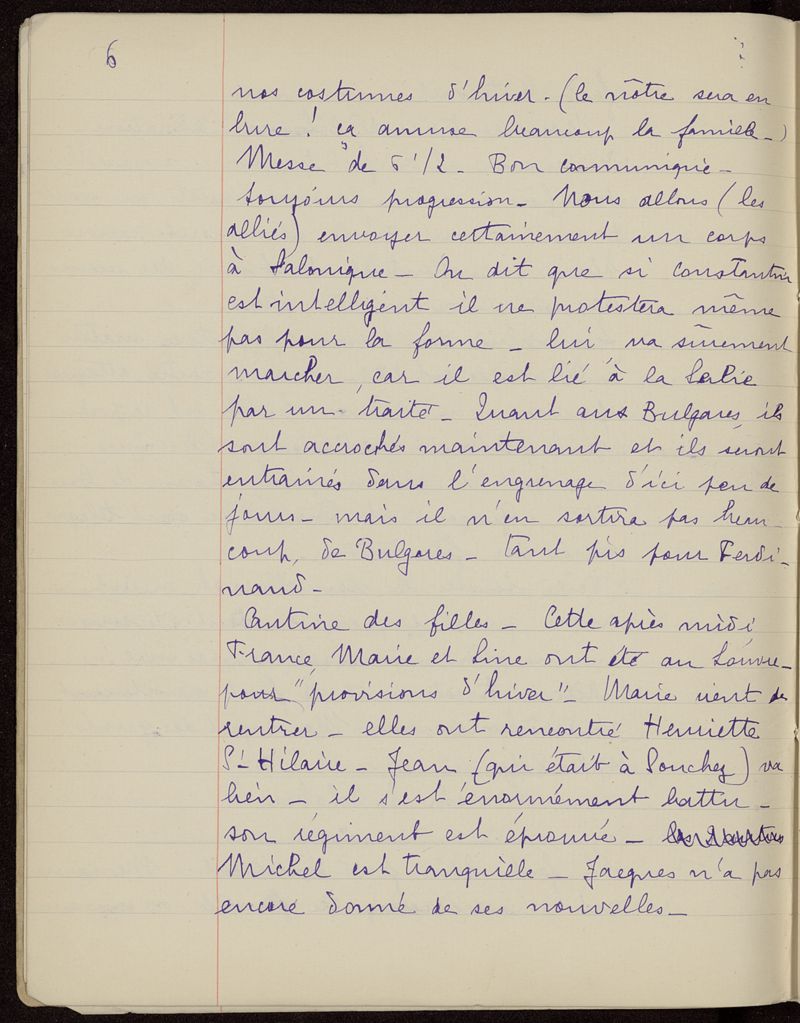 6
nos costumes d'hiver. (le nôtre sera en
bure ! ça amuse beaucoup la famille _)
Messe de 6 1/2 _ Bon communiqué _
toujours progression _ Nous allons (les
alliés) envoyer certainement un corps
à Salonique _ On dit que si Constantin
est intelligent il ne protestera même
pas pour la forme _ lui va sûrement
marcher, car il est lié à la Serbie
par un traité _ Quant aux Bulgares, ils
sont accrochés maintenant et ils seront
entrainés dans l'engrenage d'ici peu de
jours _ mais il n'en sortira pas beau-
coup, de Bulgares _ tant pis pour Ferdi-
nand _
Cantine des filles _ Cette après midi,
France, Marie et Line ont été au Louvre _
pour "provisions d'hiver" _ Marie vient de
rentrer _ elles ont rencontré Henriette
St Hilaire _ Jean (qui était à Souchez) va
bien _ il s'est énormément battu _
son régiment est éprouvé _
Michel est tranquille _ Jacques n'a pas
encore donné de ses nouvelles _